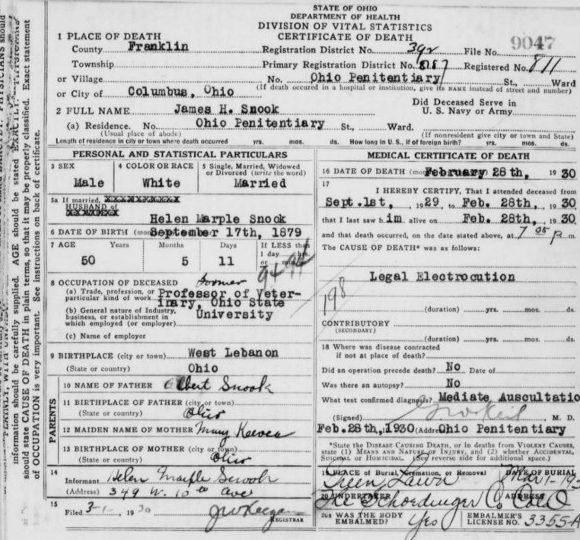 STATE OF OHIO
DEPARTMENT OF HEALTH
DIVISION OF VITAL STATISTICS
CERTIFICATE OF DEATH
1 PLACE OF DEATH
County Franklin Registration District No. 392 File No. 9047
Township Primary Registration District No. 8187 Registered No. 811
or Village No. Ohio Penitentiary St., Ward
or City of Columbus, Ohio (If death occurred in a hospital or institution, give its NAME instead of street and number)
2 FULL NAME James H. Snook Did Deceased Serve in U. S. Navy or Army
(a) Residence. No. Ohio Penitentiary St., Ward.
(Usual place of abode) (If nonresident give city or town and State)
Length of residence in city or town where death occurred yrs. mos. ds. How long in U. S., if of foreign birth? yrs. mos. ds.
PERSONAL AND STATISTICAL PARTICULARS
3 SEX 4 COLOR OR RACE 5 Single, Married, Widowed or Divorced (write the word)
Male White Married
5a If married,
HUSBAND of
Helen Marple Snook
6 DATE OF BIRTH September 17th, 1879
7 AGE Years Months Days If LESS than 1 day
50 5 11
8 OCCUPATION OF DECEASED former
(a) Trade, profession, or particular kind of work Professor of Veterinary, Ohio State University
(b) General nature of Industry, business, or establishment in which employed (or employer)
(c) Name of employer
9 BIRTHPLACE (city or town) West Lebanon
(State or country) Ohio
PARENTS
10 NAME OF FATHER Albert Snook
11 BIRTHPLACE OF FATHER (city or town)
(State or country) Ohio
12 MAIDEN NAME OF MOTHER Mary Keever
13 BIRTHPLACE OF MOTHER (city or town)
(State or country) Ohio
14 Informant Helen Marple Snook
(Address) 349 W. 10th Ave
15 Filed 3-1, 1930 REGISTRAR
MEDICAL CERTIFICATE OF DEATH
16 DATE OF DEATH February 28th, 1930
17 I HEREBY CERTIFY, That I attended deceased from
Sept. 1st, 1929, to Feb. 28th, 1930
that I last saw him alive on Feb. 28th, 1930
and that death occurred, on the date stated above, at 7 05 P m.
The CAUSE OF DEATH* was as follows:
Legal Electrocution
198
(duration) yrs. mos. ds.
CONTRIBUTORY
(SECONDARY)
(duration) yrs. mos. ds.
18 Where was disease contracted
if not at place of death?
Did an operation precede death? No Date of
Was there an autopsy? No
What test confirmed diagnosis? Mediate Auscultation
(Signed) M. D.
Feb. 28th, 1930 (Address) Ohio Penitentiary
*State the DISEASE CAUSING DEATH, or in deaths from VIOLENT CAUSES, state (1) MEANS AND NATURE OF INJURY, and (2) whether ACCIDENTAL, SUICIDAL, or HOMICIDAL. (See reverse side for additional space.)
PLACE OF Burial, Cremation, or Removal DATE OF BURIAL
Green Lawn Mar 1-193
20 UNDERTAKER ADDRESS
Schoedinger Co Col O
20a WAS THE BODY EMBALMED? Yes EMBALMER'S LICENSE NO. 3355-A